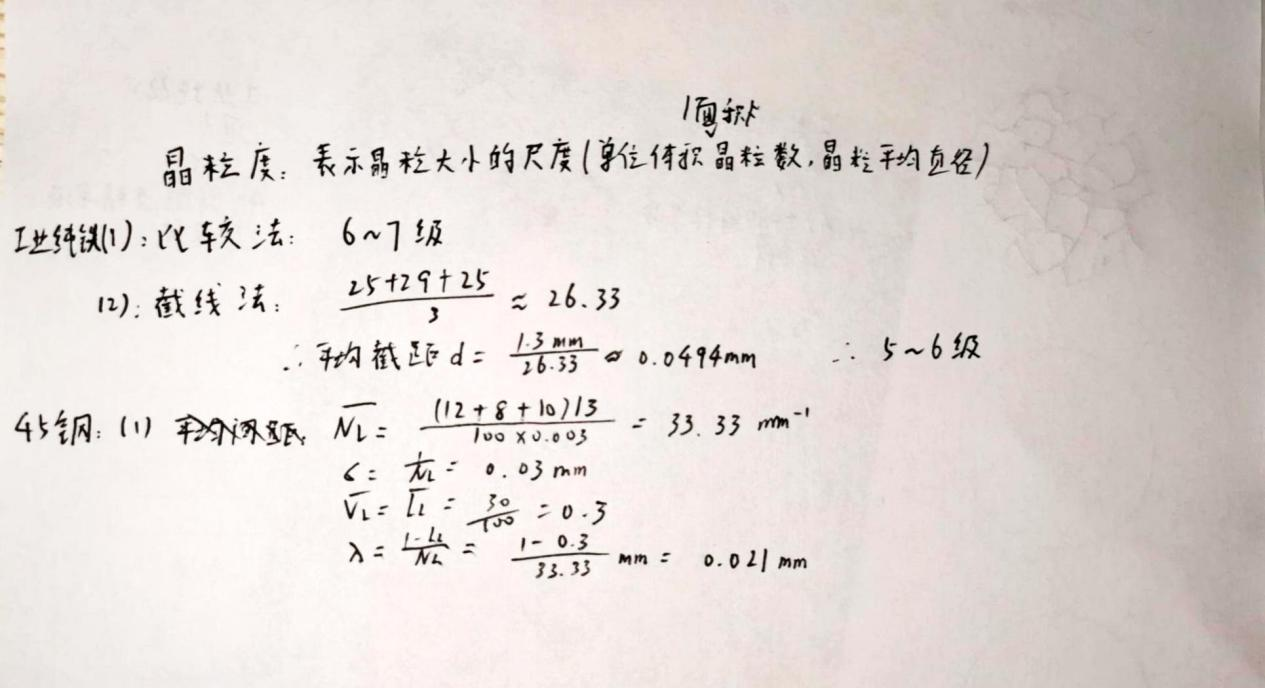 /面积
晶粒度: 表示晶粒大小的尺度(单位体积晶粒数,晶粒平均直径)
工业纯铁(1): 比较法: 6~7级
(2): 截线法: (25+29+25)/3 ≈ 26.33
∴平均截距d= 1.3mm/26.33 ≈ 0.0494mm ∴ 5~6级
45钢: (1) N̅L = (12+8+10)/3 / (100×0.003) = 33.33 mm⁻¹
= 1/NL = 0.03 mm
V̅L = L̅L = 30/100 = 0.3
λ = (1-LL)/NL = (1-0.3)/33.33 mm = 0.021 mm